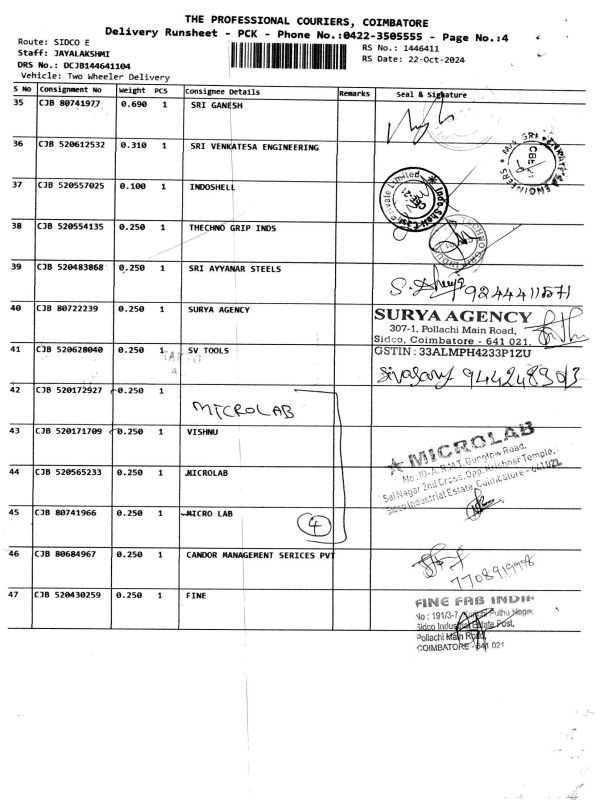 THE PROFESSIONAL COURIERS, COIMBATORE
Delivery Runsheet - PCK - Phone No.:0422-3505555 - Page No.:4
Route: SIDCO E
RS No.: 1446411
Staff: JAYALAKSHMI
RS Date: 22-Oct-2024
DRS No.: DCJB144641104
Vehicle: Two Wheeler Delivery
S No Consignment No Weight PCS Consignee Details Remarks Seal & Signature
35 CJB 80741977 0.690 1 SRI GANESH
36 CJB 520612532 0.310 1 SRI VENKATESA ENGINEERING
37 CJB 520557025 0.100 1 INDOSHELL
38 CJB 520554135 0.250 1 THECHNO GRIP INDS
39 CJB 520483868 0.250 1 SRI AYYANAR STEELS
40 CJB 80722239 0.250 1 SURYA AGENCY
SURYA AGENCY
307-1, Pollachi Main Road,
Sidco, Coimbatore - 641 021.
GSTIN : 33ALMPH4233P1ZU
41 CJB 520628040 0.250 1 SV TOOLS
42 CJB 520172927 0.250 1
MICROLAB
43 CJB 520171709 0.250 1 VISHNU
MICROLAB
No:10-A, R.M.T. Bunglow Road,
Sai Nagar 2nd Cross, Opp. Krishnar Temple,
Sidco Industrial Estate, Coimbatore - 641021.
44 CJB 520565233 0.250 1 MICROLAB
45 CJB 80741966 0.250 1 MICRO LAB
4
46 CJB 80684967 0.250 1 CANDOR MANAGEMENT SERICES PVT
7708919998
47 CJB 520430259 0.250 1 FINE
FINE FAB INDIA
No : 191/3-7, Puthu Nagar,
Sidco Industrial Estate Post,
Pollachi Main Road,
COIMBATORE - 641 021